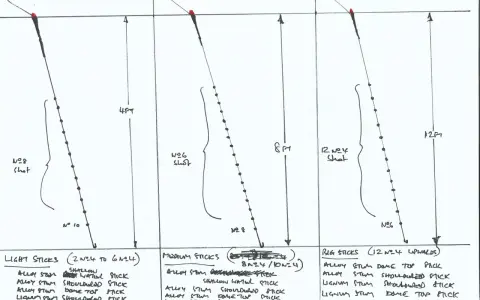 4FT
8FT
12FT
No8
Shot
No6
Shot
12 No4
Shot
No 10
No 8
No6
LIGHT STICKS (2 No4 TO 6 No4)
SHALLOW
ALLOY STEM WATER STICK
ALLOY STEM SHOULDERED STICK
ALLOY STEM DOME TOP STICK
LIGNUM STEM SHOULDERED STICK
MEDIUM STICKS
8 No4 / 10 No4)
ALLOY STEM
SHALLOW WATER STICK
ALLOY STEM SHOULDERED STICK
ALLOY STEM DOME TOP STICK
BIG STICKS (12 No4 UPWARDS)
ALLOY STEM DOME TOP STICK
ALLOY STEM SHOULDERED STICK
LIGNUM STEM SHOULDERED STICK
LIGNUM STEM DOME TOP STICK